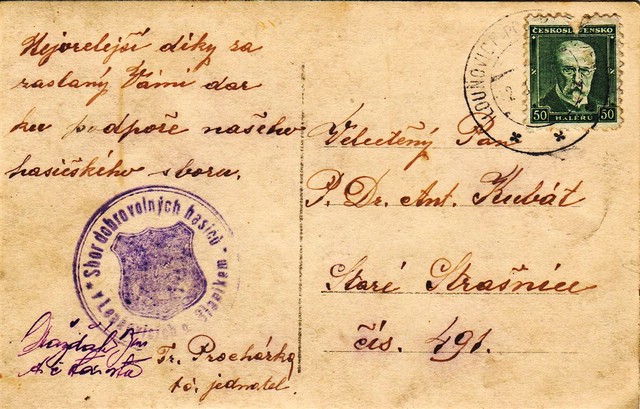 Nejvřelejší díky za
zaslaný Vámi dar
ku podpoře našeho
hasičského sboru.
Sbor dobrovolných hasičů
Fr. Procházka
t. č. jednatel.
ČESKOSLOVENSKO
50 HALÉŘŮ 50
LOUNOVICE
Velectěný Pan
P. Dr. Ant. Kubát
Staré Strašnice
čís. 491.